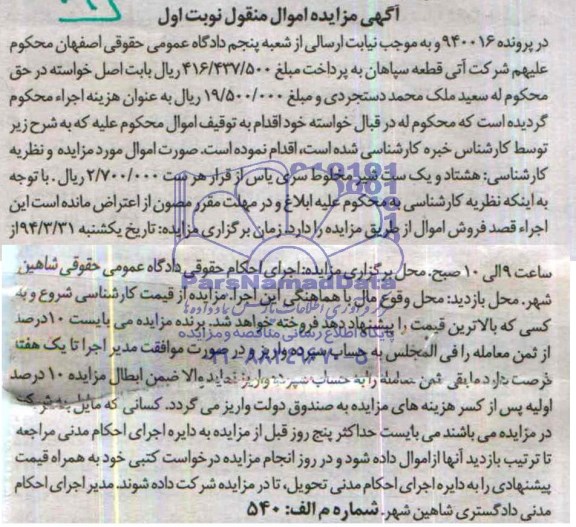 آگهی مزایده اموال منقول نوبت اول
در پرونده ۹۴۰۰۱۶ و به موجب نیابت ارسالی از شعبه پنجم دادگاه عمومی حقوقی اصفهان محکوم
علیهم شرکت آتی قطعه سپاهان به پرداخت مبلغ ۴۱۶/۴۳۷/۵۰۰ ریال بابت اصل خواسته در حق
محکوم له سعید ملک محمد دستجردی و مبلغ ۱۹/۵۰۰/۰۰۰ ریال به عنوان هزینه اجراء محکوم
گردیده است که محکوم له در قبال خواسته خود اقدام به توقیف اموال محکوم علیه که به شرح زیر
توسط کارشناس خبره کارشناسی شده است، اقدام نموده است. صورت اموال مورد مزایده و نظریه
کارشناسی: هشتاد و یک ست شیر مخلوط سری یاس از قرار هر ست ۲/۷۰۰/۰۰۰ ریال. با توجه
به اینکه نظریه کارشناسی به محکوم علیه ابلاغ و در مهلت مقرر مصون از اعتراض مانده است این
اجراء قصد فروش اموال از طریق مزایده را دارد. زمان برگزاری مزایده: تاریخ یکشنبه ۹۴/۳/۳۱ از
ساعت ۹ الی ۱۰ صبح. محل برگزاری مزایده: اجرای احکام حقوقی دادگاه عمومی حقوقی شاهین
شهر. محل بازدید: محل وقوع مال با هماهنگی این اجرا. مزایده از قیمت کارشناسی شروع و به
کسی که بالاترین قیمت را پیشنهاد دهد فروخته خواهد شد. برنده مزایده می بایست ۱۰ درصد
از ثمن معامله را فی المجلس به حساب سپرده واریز و در صورت موافقت مدیر اجرا تا یک هفته
فرصت دارد مابقی ثمن معامله را به حساب سپرده واریز نماید والا ضمن ابطال مزایده ۱۰ درصد
اولیه پس از کسر هزینه های مزایده به صندوق دولت واریز می گردد. کسانی که مایل به شرکت
در مزایده می باشند می بایست حداکثر پنج روز قبل از مزایده به دایره اجرای احکام مدنی مراجعه
تا ترتیب بازدید آنها از اموال داده شود و در روز انجام مزایده درخواست کتبی خود به همراه قیمت
پیشنهادی را به دایره اجرای احکام مدنی تحویل، تا در مزایده شرکت داده شوند. مدیر اجرای احکام
مدنی دادگستری شاهین شهر. شماره م الف: ۵۴۰
ParsNamadData
پایگاه اطلاع رسانی مناقصه و مزایده